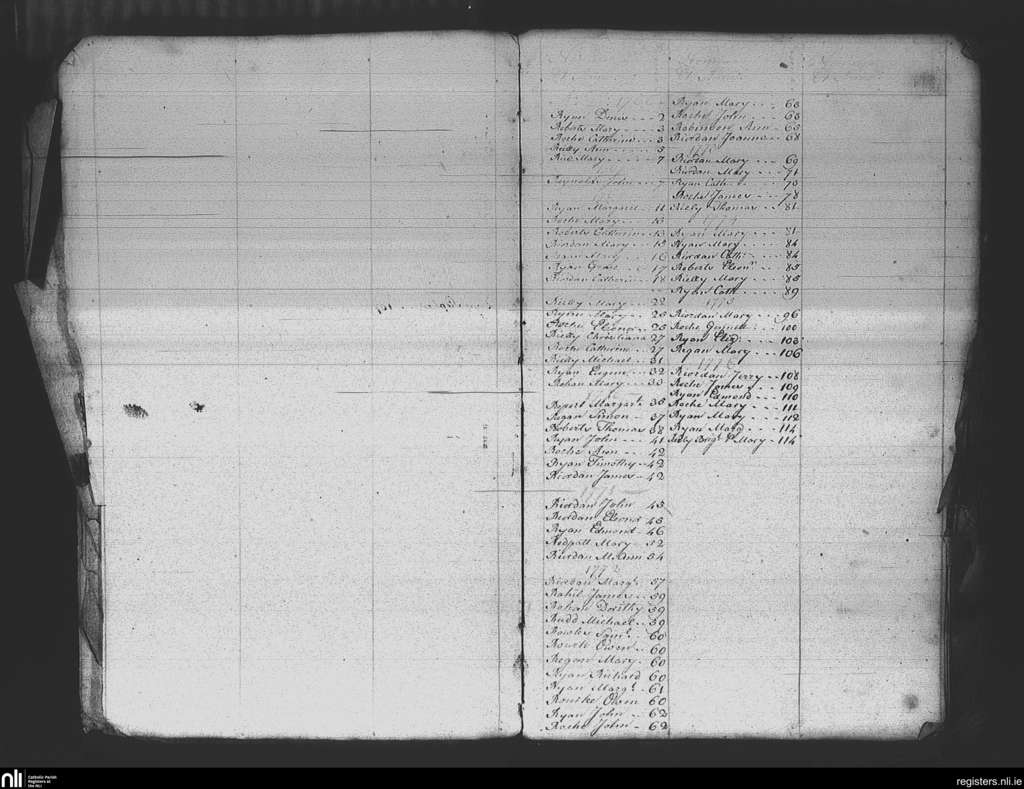 Ryan Denis - - 2
Roberts Mary - - - 3
Roche Catherine - - 3
Reilly Ann - - - - 5
Mary - - - 7
Reynolds John - - 7
Ryan Margaret - 11
Roche Mary - - 13
Roberts Catherine - 13
Riordan Mary - - 15
Mary - - - 16
Ryan Grace - - 17
Riordan Catherine - 18
Reilly Mary - - 22
Mary - - 25
Roche Elenor - - 25
Reilly Christiana 27
Roche Catherine - 27
Reilly Michael - - 31
Ryan Eugene - - 32
Rohan Mary - - 33
Margart. 35
Regan Simon - - 37
Roberts Thomas 38
Ryan John - - - 41
Roche Ann - - 42
Ryan Timothy - 42
Riordan James - 42
Riordan John 45
Riordan Elenor 45
Ryan Edmond - 46
Mary - 52
Riordan Mary Ann 54
1772
Riordan Margt. 57
Rahil James - - 59
Rahan Dorithy 59
Rudd Michael - 59
Rowles Saml. - 60
Owen - - 60
Regan Mary - 60
Ryan Richard 60
Ryan Margt. - 61
Rourke Owen 60
Ryan John - - 62
Roche John - - 62
Ryan Mary - - - 63
Roche John - - 63
Robinson Ann - 65
Riordan Joanna - 68
Riordan Mary - - 69
Riordan Mary - - - 71
Ryan Cath - - - 75
Roche James - - - 78
Reilly Thomas - - 81
Ryan Mary - - - - 81
Ryan Mary - - - 84
Riordan Cathe. - - 84
Roberts Eleonr. - - 85
Reilly Mary - - - 85
Ryan Cath - - - - 89
1775
Riordan Mary - - - 96
Roche - - 100
Ryan Eliz. - - - 103
Regan Mary - - - 106
Riordan Jerry - - 108
Roche James - - - 109
Ryan Edmond - - - 110
Roche Mary - - - 111
Ryan Mary - - - 112
Ryan Mary - - - 114
Mary - 114
nli
Catholic Parish
Registers at
the NLI
registers.nli.ie